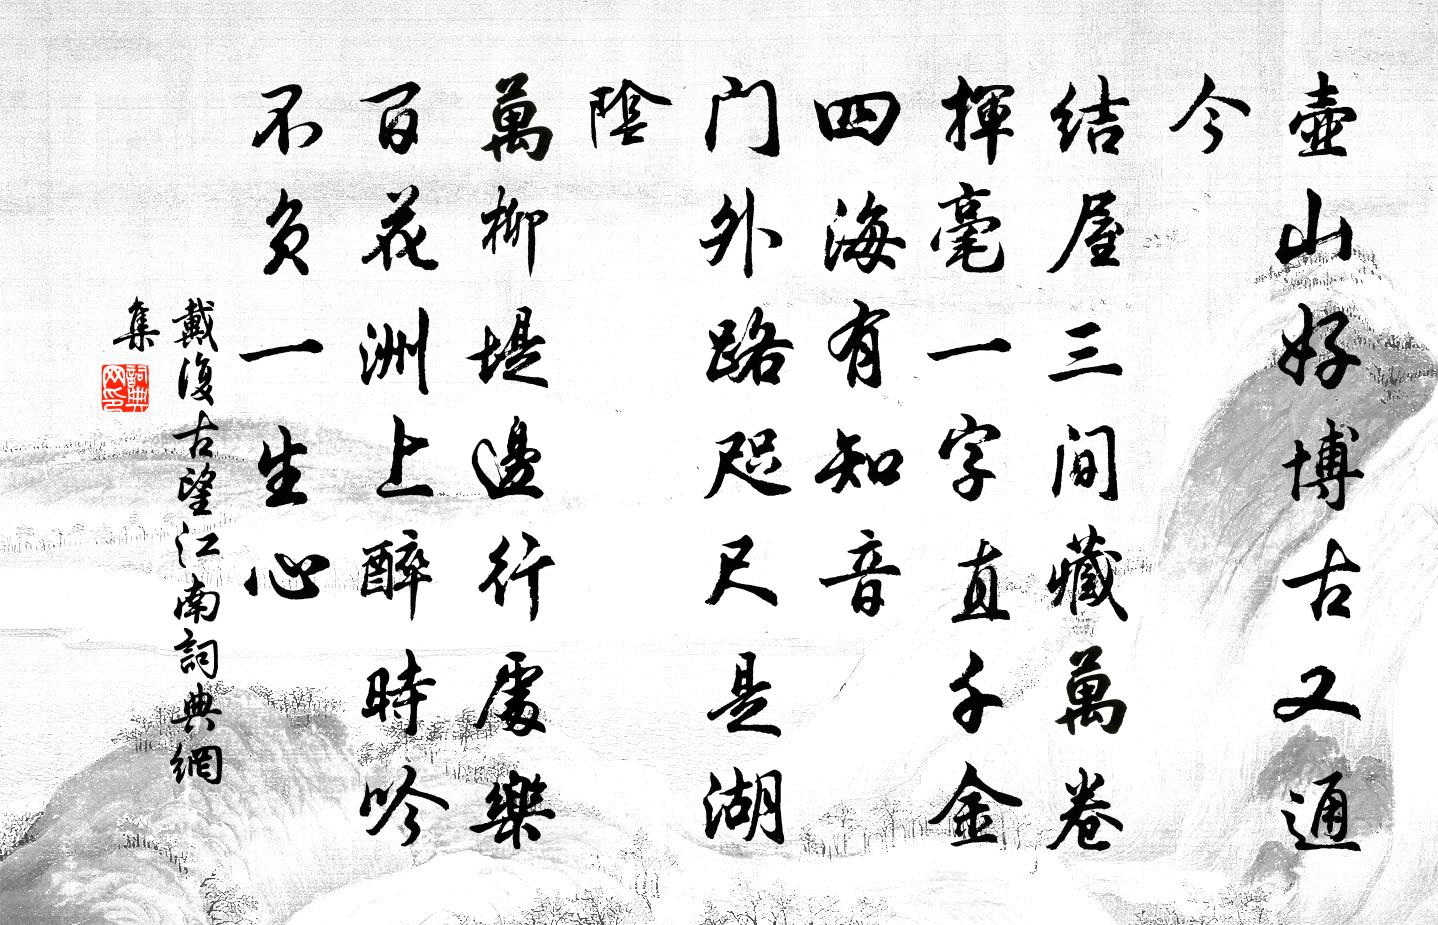 壺山好博古又通
今
结屋三间藏萬卷
揮毫一字直千金
四海有知音
门外路咫尺是湖
陰
萬柳堤邊行處樂
百花洲上醉時吟
不负一生心
戴復古望江南詞典網
集
詞典
网印